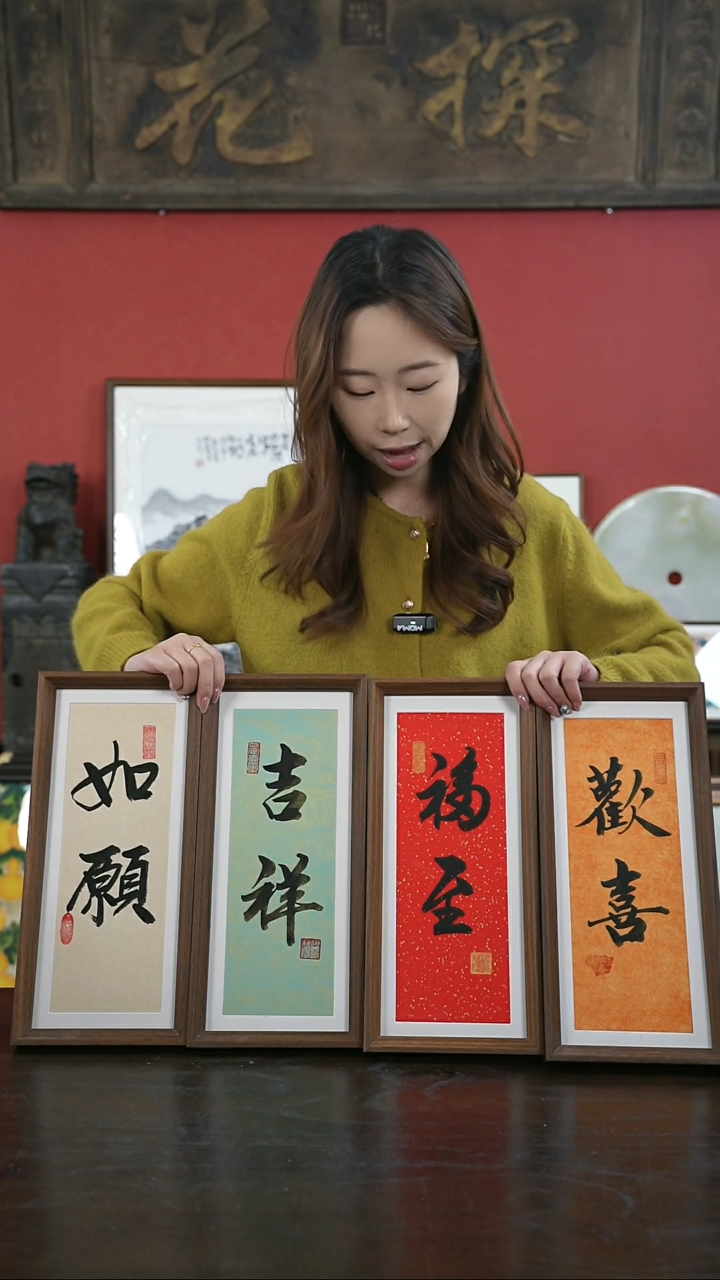 探花
歡喜
福至
吉祥
如願